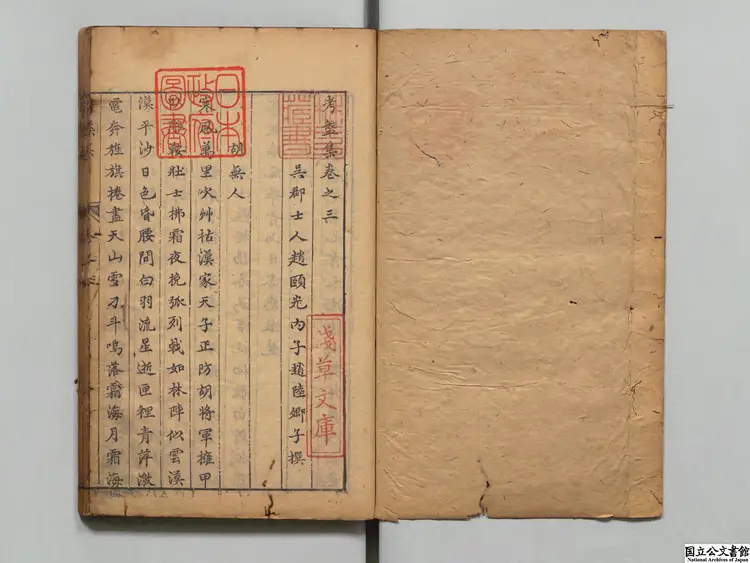 考槃集卷之三
吳郡士人趙頤光內子趙陸卿子撰
胡無人
寒風萬里艸枯漢家天子正防胡將軍擁甲
鞍壯士拂霜夜挽弧列戟如林陣似雲漠
漠平沙日色昏腰間白羽流星逝匣裡青萍激
電奔旌旗捲盡天山雪刁斗鳴落霜海月霜海
林氏藏書
淺草文庫
日本政府圖書
国立公文書館
National Archives of Japan